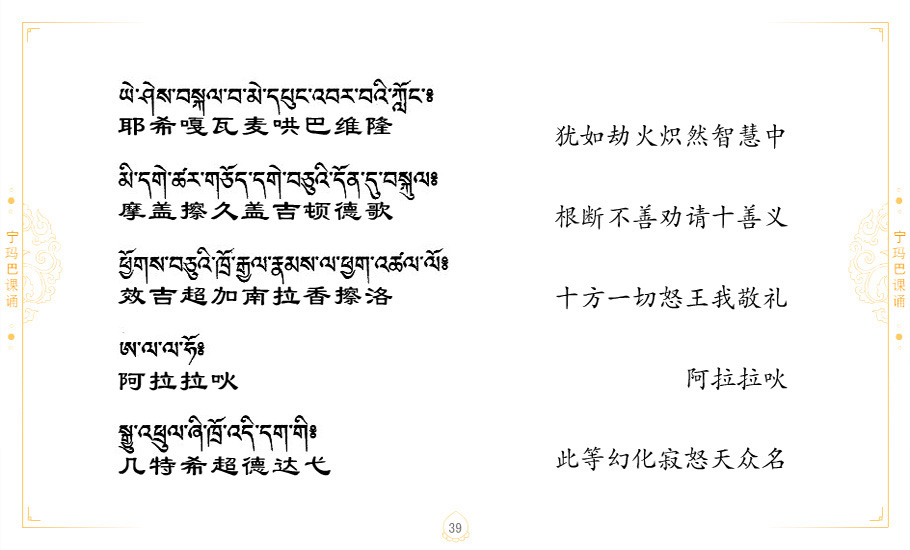 ཡེ་ཤེས་བསྐལ་བ་མེ་དཔུང་འབར་བའི་ཀློང་༔
耶希嘎瓦麦哄巴维隆
犹如劫火炽然智慧中
མི་དགེ་ཚར་གཅོད་དགེ་བཅུའི་དོན་དུ་བསྐུལ༔
摩盖擦久盖吉顿德歌
根断不善劝请十善义
ཕྱོགས་བཅུའི་ཁྲོ་རྒྱལ་རྣམས་ལ་ཕྱག་འཚལ་ལོ༔
效吉超加南拉香擦洛
十方一切怒王我敬礼
ཨ་ལ་ལ་ཧོ༔
阿拉拉吙
阿拉拉吙
སྒྱུ་འཕྲུལ་ཞི་ཁྲོ་འདི་དག་གི༔
几特希超德达弋
此等幻化寂怒天众名
宁玛巴课诵
宁玛巴课诵
39